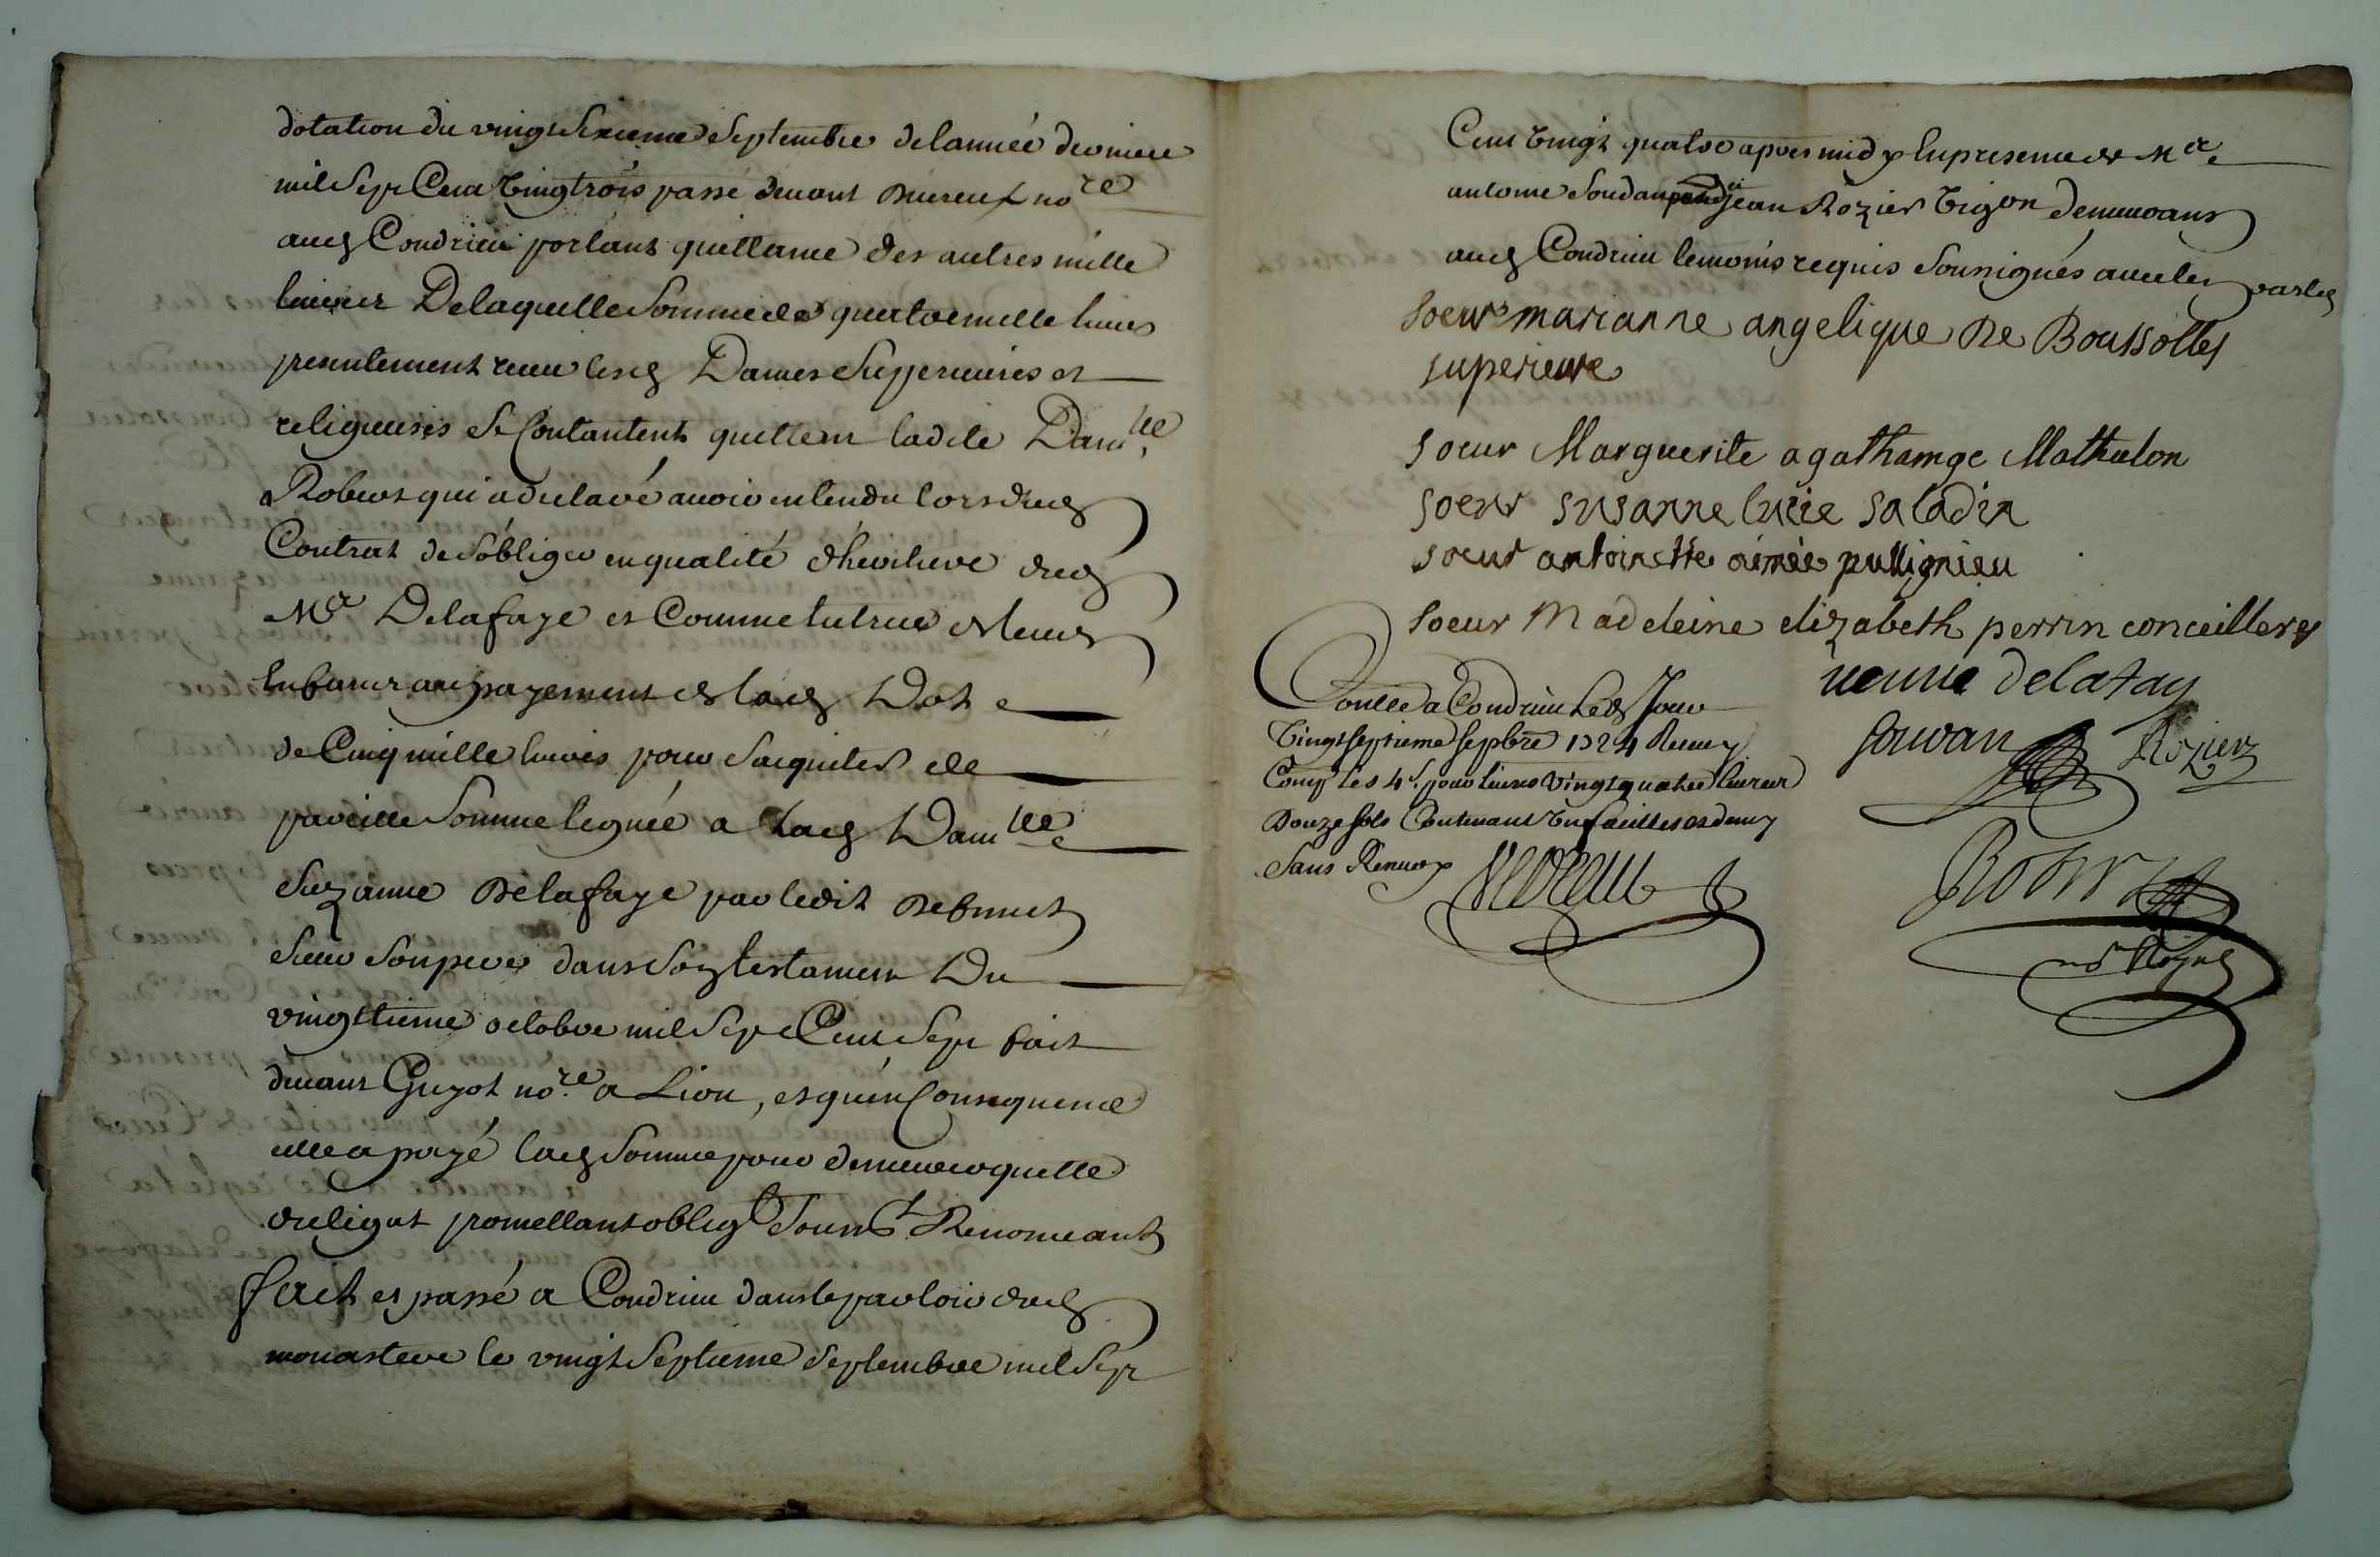 dotation du vingt sixieme septembre de lannée derniere
mil sept Cent vingt trois passé devant no.re
aud Condrieu portant quittance des autres mille
livres De laquelle somme de quatre mille livres
presentement receu lesd Dames Superieures et
religieuses se Contantent quittent ladite Dam.lle
Robert qui a declaré avoir entendu lors dud
Contrat de sobliger en qualité dheritiere dud
Mr Delafaye et Comme tutrice de leurs
enfants au payement de lad Dot
de Cinq mille livres pour saquiter de
pareille somme leguée a Lad Dam.lle
Suzanne Delafaye par ledit Deffunct
sieur son pere dans son testament Du
vingttieme octobre mil sept Cent sept fait
devant Guyot no.re a Lion, et quen Consequence
elle a payé lad somme pour demeurer quitte
du legat promettant oblig soum.t Renonceant
fait et passé a Condrieu dans le parloir dud
monastere le vingt septieme septembre mil sept
Cent vingt quatre apres midy En presence de Mre
antoine jean Rozier Vigon demeurans
aud Condrieu temoins requis soussignés avec les parties
soeur marianne angelique De Boussolles
superieure
soeur Marguerite agathange Mathalon
soeur susanne lucie saladin
soeur antoinette aimée pullignieu
soeur Madeleine elizabeth perrin conceilleres
veuve delafay
Rozier
Conllé a Condrieu Led Jour
Vingt septieme sepbre 1724 Receu
Comp Les 4 s. pour livres Vingt quatre livres
Douze sols Contenant un feuillet et demy
Sans Renvoy
Robert
no.re Royal